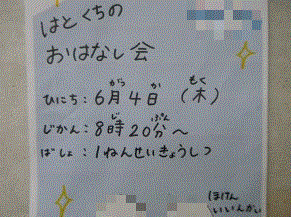 はとくちの
おはなし会
ひにち：6月4日（木）
じかん：8時20分～
ばしょ：1ねんせいきょうしつ
ほけん
いいんかい